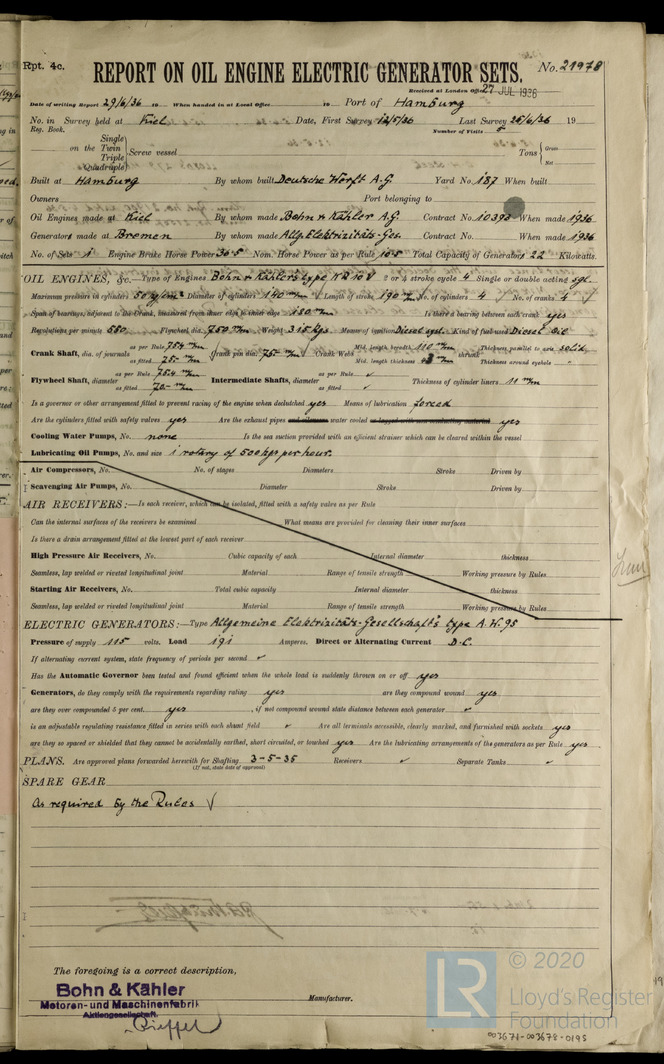 Rpt. 4c.
REPORT ON OIL ENGINE ELECTRIC GENERATOR SETS.
No. 21978
Received at London Office 27 JUL 1936
Date of writing Report 29/6/36 19 When handed in at Local Office 19 Port of Hamburg
No. in Survey held at Kiel Date, First Survey 12/5/36 Last Survey 25/6/36 19
Reg. Book. Number of Visits 5
Single
on the Twin
Triple
Quadruple
Screw vessel
Tons Gross
Net
Built at Hamburg By whom built Deutsche Werft A.G. Yard No. 187 When built
Owners Port belonging to
Oil Engines made at Kiel By whom made Bohn & Kähler A.G. Contract No. 10393 When made 1936
Generators made at Bremen By whom made Allg. Elektrizitäts-Ges. Contract No. When made 1936
No. of Sets 1 Engine Brake Horse Power 30.5 Nom. Horse Power as per Rule 10.5 Total Capacity of Generators 22 Kilowatts.
OIL ENGINES, &c.—Type of Engines Bohn & Kähler type 2 or 4 stroke cycle 4 Single or double acting sgl.
Maximum pressure in cylinders 50 Diameter of cylinders 140 m/m Length of stroke 190 m/m No. of cylinders 4 No. of cranks 4
Span of bearings, adjacent to the Crank, measured from inner edge to inner edge m/m Is there a bearing between each crank yes
Revolutions per minute 550 Flywheel dia. 750 m/m Weight 315 kgs Means of ignition Diesel syst. Kind of fuel used Diesel oil
Crank Shaft, dia. of journals as per Rule 75.4 m/m as fitted 75.- m/m Crank pin dia. 75.- m/m Crank Webs Mid. length breadth 110 m/m Mid. length thickness m/m shrunk Thickness parallel to axis solid
Thickness around eyehole
Flywheel Shaft, diameter as per Rule 75.4 m/m as fitted 70.- m/m Intermediate Shafts, diameter as per Rule ✓ as fitted ✓ Thickness of cylinder liners 11 m/m
Is a governor or other arrangement fitted to prevent racing of the engine when declutched yes Means of lubrication forced
Are the cylinders fitted with safety valves yes Are the exhaust pipes and silencers water cooled or lagged with non-conducting material yes
Cooling Water Pumps, No. none Is the sea suction provided with an efficient strainer which can be cleared within the vessel
Lubricating Oil Pumps, No. and size 1 rotary of 500 kgs per hour.
Air Compressors, No. No. of stages Diameters Stroke Driven by
Scavenging Air Pumps, No. Diameter Stroke Driven by
AIR RECEIVERS:—Is each receiver, which can be isolated, fitted with a safety valve as per Rule
Can the internal surfaces of the receivers be examined What means are provided for cleaning their inner surfaces
Is there a drain arrangement fitted at the lowest part of each receiver
High Pressure Air Receivers, No. Cubic capacity of each Internal diameter thickness
Seamless, lap welded or riveted longitudinal joint Material Range of tensile strength Working pressure by Rules
Starting Air Receivers, No. Total cubic capacity Internal diameter thickness
Seamless, lap welded or riveted longitudinal joint Material Range of tensile strength Working pressure by Rules
ELECTRIC GENERATORS:—Type Allgemeine Elektrizitäts-Gesellschaft's type A.W. 95
Pressure of supply 115 volts. Load 191 Amperes. Direct or Alternating Current D.C.
If alternating current system, state frequency of periods per second ✓
Has the Automatic Governor been tested and found efficient when the whole load is suddenly thrown on or off yes
Generators, do they comply with the requirements regarding rating yes are they compound wound yes
are they over compounded 5 per cent. yes , if not compound wound state distance between each generator ✓
is an adjustable regulating resistance fitted in series with each shunt field ✓ Are all terminals accessible, clearly marked, and furnished with sockets yes
are they so spaced or shielded that they cannot be accidentally earthed, short circuited, or touched yes Are the lubricating arrangements of the generators as per Rule yes
PLANS. Are approved plans forwarded herewith for Shafting 3-5-35 Receivers ✓ Separate Tanks ✓
(If not, state date of approval)
SPARE GEAR
As required by the Rules ✓
The foregoing is a correct description,
Bohn & Kähler
Motoren- und Maschinenfabrik
Aktiengesellschaft.
Manufacturer.
© 2020
LR
Lloyd's Register
Foundation
003671-003678-0195